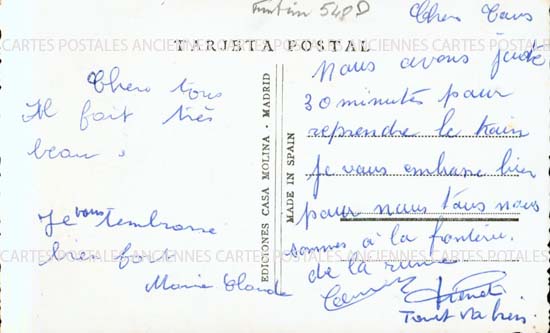 TARJETA POSTAL
Chers tous
Il fait très
beau.
Je vous embrasse
bien fort
Marie Claude
EDICIONES CASA MOLINA - MADRID
MADE IN SPAIN
Chers Tous
Nous avons juste
30 minutes pour
reprendre le train
je vous embrasse bien
pour nous tous nous
sommes à la frontière.
de la
CARTES POSTALES ANCIENNES CARTES POSTALES ANCIENNES
CARTES POSTALES ANCIENNES